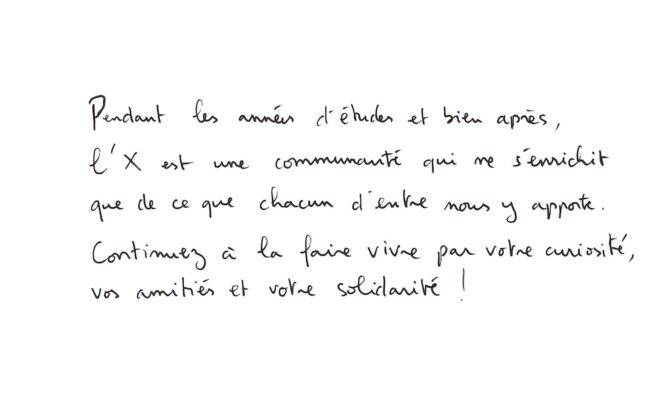 Pendant les années d'études et bien après,
l'X est une communauté qui ne s'enrichit
que de ce que chacun d'entre nous y apporte.
Continuez à la faire vivre par votre curiosité,
vos amitiés et votre solidarité !